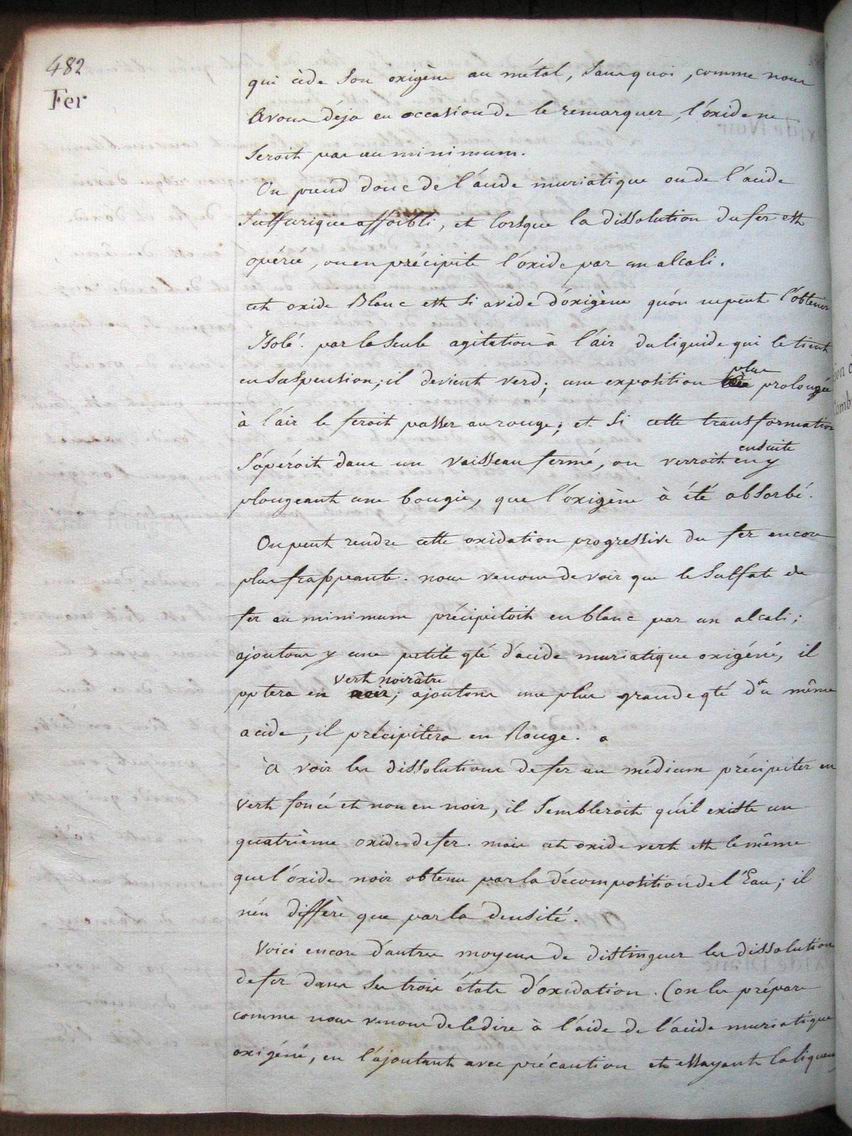 482
Fer
qui cède son oxigène au métal, sans quoi, comme nous
avons déja eu occasion de le remarquer, l'oxide ne
seroit pas au minimum.
On prend donc de l'acide muriatique ou de l'acide
sulfurique affoibli, et lorsque la dissolution du fer est
opérée, on en précipite l'oxide par un alcali.
cet oxide Blanc est si avide d'oxigène qu'on ne peut l'obtenir
Isolé. par la seule agitation à l'air du liquide qui le tient
en suspension, il devient verd; une exposition plus prolongée
à l'air le feroit passer au rouge; et si cette transformation
s'opéroit dans un vaisseau fermé, on verroit ensuite en y
plongeant une bougie, que l'oxigène à été absorbé.
On peut rendre cette oxidation progressive du fer encore
plus frappante. nous venons de voir que le sulfate de
fer au minimum précipitoit en blanc par un alcali;
ajoutons y une petite qté d'acide muriatique oxigéné, il
pptera en vert noirâtre; ajoutons une plus grande qté du même
acide, il précipitera en Rouge.
à voir les dissolutions de fer au médium précipiter en
vert foncé et non en noir, il sembleroit qu'il existe un
quatrième oxide de fer. mais cet oxide vert est le même
que l'oxide noir obtenu par la décomposition de l'Eau; il
n'en diffère que par la densité.
Voici encore d'autres moyens de distinguer les dissolutions
de fer dans ses trois états d'oxidation. (on les prépare
comme nous venons de le dire à l'aide de l'acide muriatique
oxigéné, en l'ajoutant avec précaution et essayant la liqueur